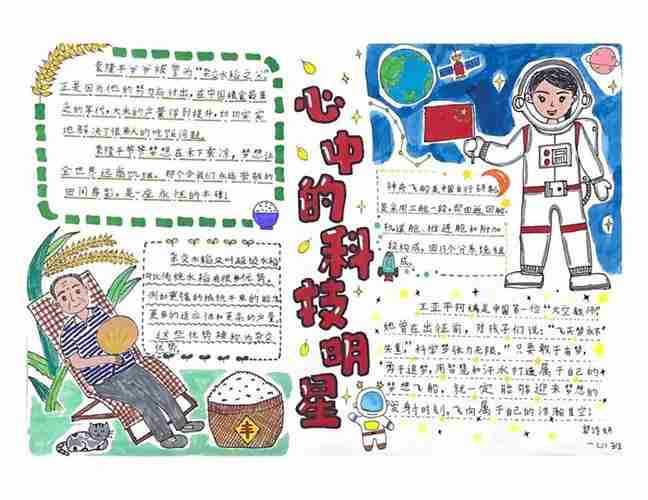 袁隆平爷爷被誉为“杂交水稻之父”
正是因为他的努力和付出，在中国粮食最重
之的年代，大米的产量得到提升，切切实实
地解决了很多人的吃饭问题。
袁隆平爷爷梦想在禾下乘凉，梦想让
全世界远离饥饿。那个令我们永远崇敬的
田间身影，是一座永恒的丰碑！
心中的科技明星
杂交水稻又叫超级水稻
对比传统水稻有很多优势，
例如更强的
更高的适应性和更高的产量，
这些优势被称为杂交
优势
丰
神舟飞船是中国自行研制，
是采用三舱一段，即由返回舱、
轨道舱、推进舱和附加
段构成，由13个分系统组
成。
王亚平阿姨是中国第一位“太空教师”
她曾在出征前，对孩子们说：“飞天梦永不
失重，科学梦张力无限。”只要敢于有梦，
勇于追梦，用智慧和汗水打造属于自己的
梦想飞船，就一定能够迎来梦想的
发射时刻，飞向属于自己的浩瀚星空！